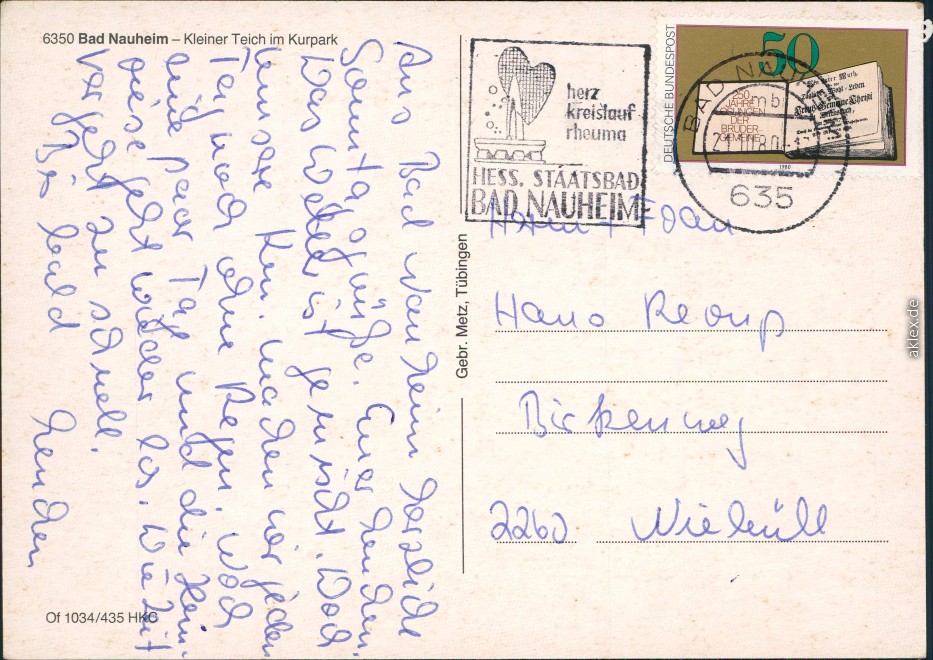 6350 Bad Nauheim – Kleiner Teich im Kurpark
Aus Bad Nauheim herzliche
Sonntagsgrüße. Euer
Das Wetter ist gemischt. Doch
unsere Kur machen wir jeden
Tag noch ohne Regen. Noch
einige paar Tage und die Heim-
reise geht wieder los. Die Zeit
vergeht zu schnell.
Bis bald
herz
kreislauf
rheuma
HESS. STAATSBAD
BAD NAUHEIM
DEUTSCHE BUNDESPOST
50
250
JAHRE
LOSUNGEN
DER
BRÜDER-
GEMEINE
1980
BAD NAUHEIM
635
Herrn + Frau
Hans
Birkenweg
2260 Niebüll
Gebr. Metz, Tübingen
Of 1034/435 HKG
aklex.de